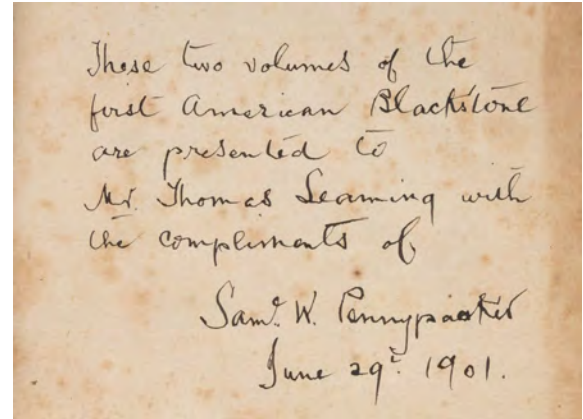 These two volumes of the
first American Blackstone
are presented to
Mr. Thomas Leaming with
the compliments of
Saml. W. Pennypacker
June 29t. 1901.